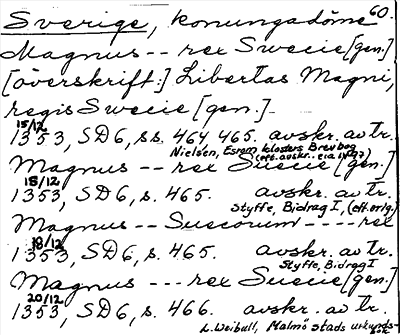 60.
Sverige, konungadöme
Magnus -- rex Swecie [gen.]
[överskrift:] Libertas Magni,
regis Swecie [gen.]
15/12
1353, SD6, ss. 464 465. avskr. av tr.
Nielsen, Esrom klosters Brevbog
(eft. avskr. c:a 1497)
Magnus -- rex Suecie [gen.]
15/12
1353, SD6, s. 465. avskr. av tr.
Styffe, Bidrag I, (eft. orig.)
Magnus -- Sueorum ---- rex
18/12
1353, SD6, s. 465. avskr. av tr.
Styffe, Bidrag I
Magnus --- rex Suecie [gen.]
20/12
1353, SD6, s. 466. avskr. av tr.
L. Weibull, Malmö stads urkunds-